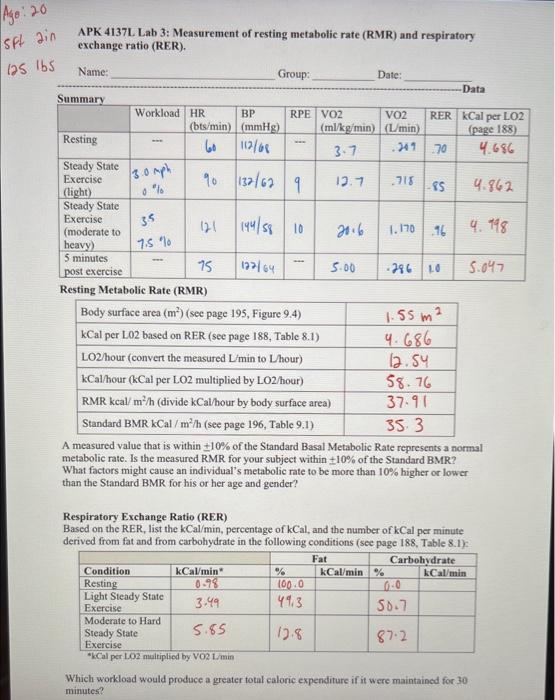 Age: 20
5ft 2in
125 lbs
APK 4137L Lab 3: Measurement of resting metabolic rate (RMR) and respiratory
exchange ratio (RER).
Name: Group: Date:
Data
Summary
Workload HR (bts/min) BP (mmHg) RPE VO2 (ml/kg/min) VO2 (L/min) RER kCal per LO2 (page 188)
Resting --- 60 112/68 --- 3.7 .209 .70 4.686
Steady State Exercise (light) 3.0 mph 0 % 90 132/62 9 12.7 .718 .85 4.862
Steady State Exercise (moderate to heavy) 3.5 7.5 % 121 144/58 10 20.6 1.170 .96 4.998
5 minutes post exercise --- 75 122/64 --- 5.00 .286 1.0 5.047
Resting Metabolic Rate (RMR)
Body surface area (m²) (see page 195, Figure 9.4) 1.55 m²
kCal per LO2 based on RER (see page 188, Table 8.1) 4.686
LO2/hour (convert the measured L/min to L/hour) 12.54
kCal/hour (kCal per LO2 multiplied by LO2/hour) 58.76
RMR kcal/ m²/h (divide kCal/hour by body surface area) 37.91
Standard BMR kCal / m²/h (see page 196, Table 9.1) 35.3
A measured value that is within ±10% of the Standard Basal Metabolic Rate represents a normal
metabolic rate. Is the measured RMR for your subject within ±10% of the Standard BMR?
What factors might cause an individual's metabolic rate to be more than 10% higher or lower
than the Standard BMR for his or her age and gender?
Respiratory Exchange Ratio (RER)
Based on the RER, list the kCal/min, percentage of kCal, and the number of kCal per minute
derived from fat and from carbohydrate in the following conditions (see page 188, Table 8.1):
Fat Carbohydrate
Condition kCal/min* % kCal/min % kCal/min
Resting 0.98 100.0 0.0
Light Steady State Exercise 3.49 49.3 50.7
Moderate to Hard Steady State Exercise 5.85 12.8 87.2
*kCal per LO2 multiplied by VO2 L/min
Which workload would produce a greater total caloric expenditure if it were maintained for 30
minutes?